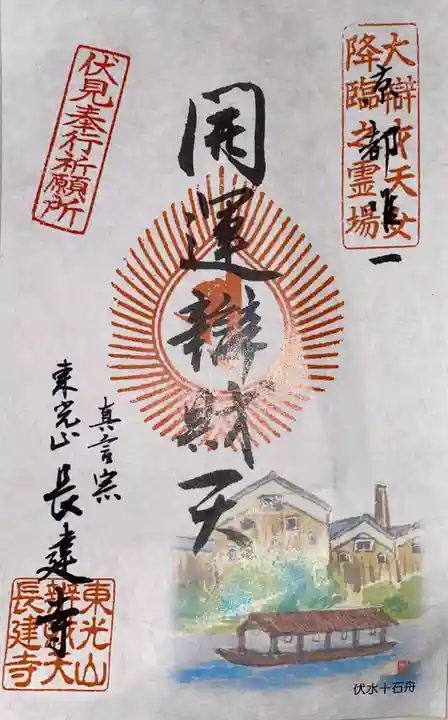 大辯才天女
降臨之霊場
京都唯一
開運辨財天
伏見奉行祈願所
真言宗
東光山
長建寺
東光山
辨財天
長建寺
伏水十石舟